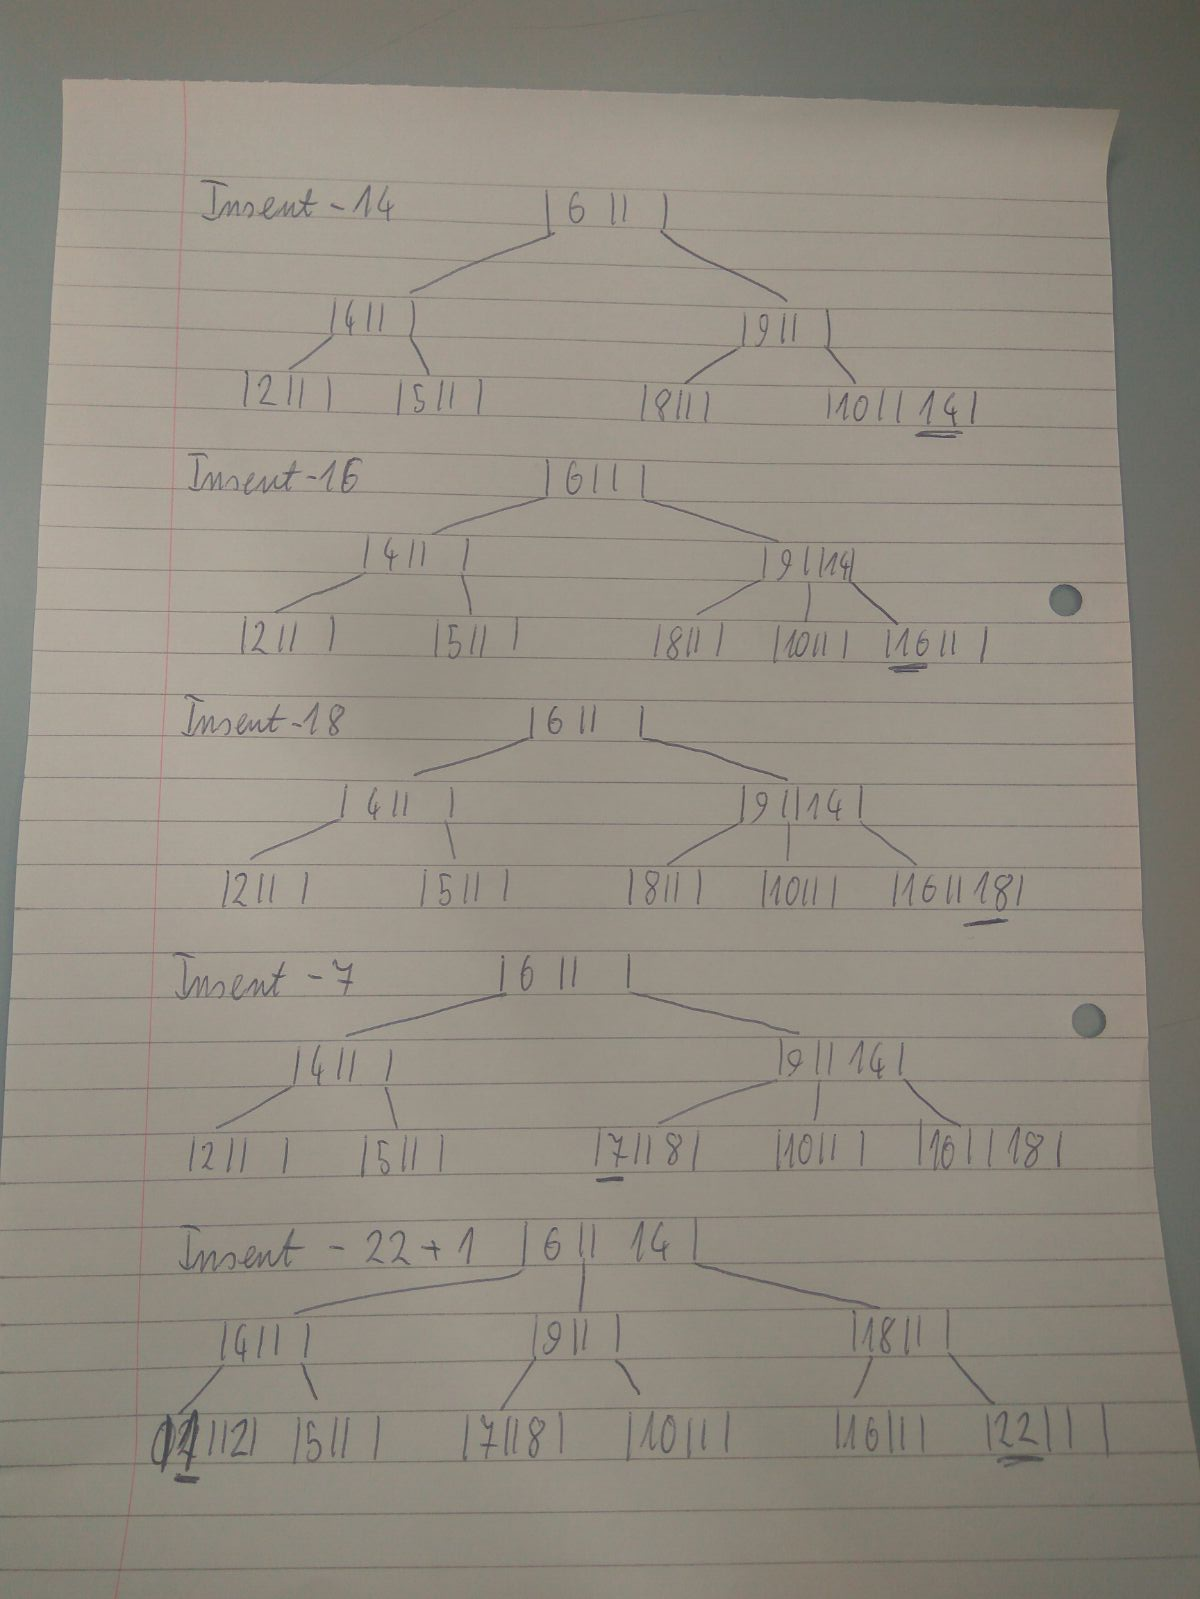 Insert-14 |6|| |
|4|| | |9|| |
|2|| | |5|| | |8||| |10||14|
Insert-16 |6|| |
|4|| | |9||14|
|2|| | |5|| | |8|| | |10|| | |16|| |
Insert-18 |6|| |
|4|| | |9||14|
|2|| | |5|| | |8|| | |10|| | |16||18|
Insert-7 |6|| |
|4|| | |9||14|
|2|| | |5|| | |7||8| |10|| | |16||18|
Insert-22+1 |6||14|
|4|| | |9|| | |18|| |
|1||2| |5|| | |7||8| |10|| | |16|| | |22|| |